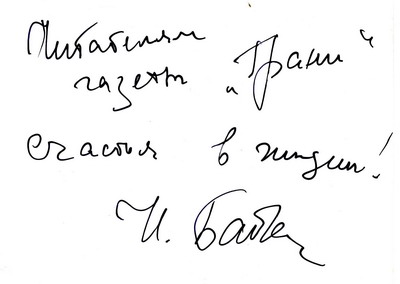 Читателям
газеты „Грани“
счастья в жизни!